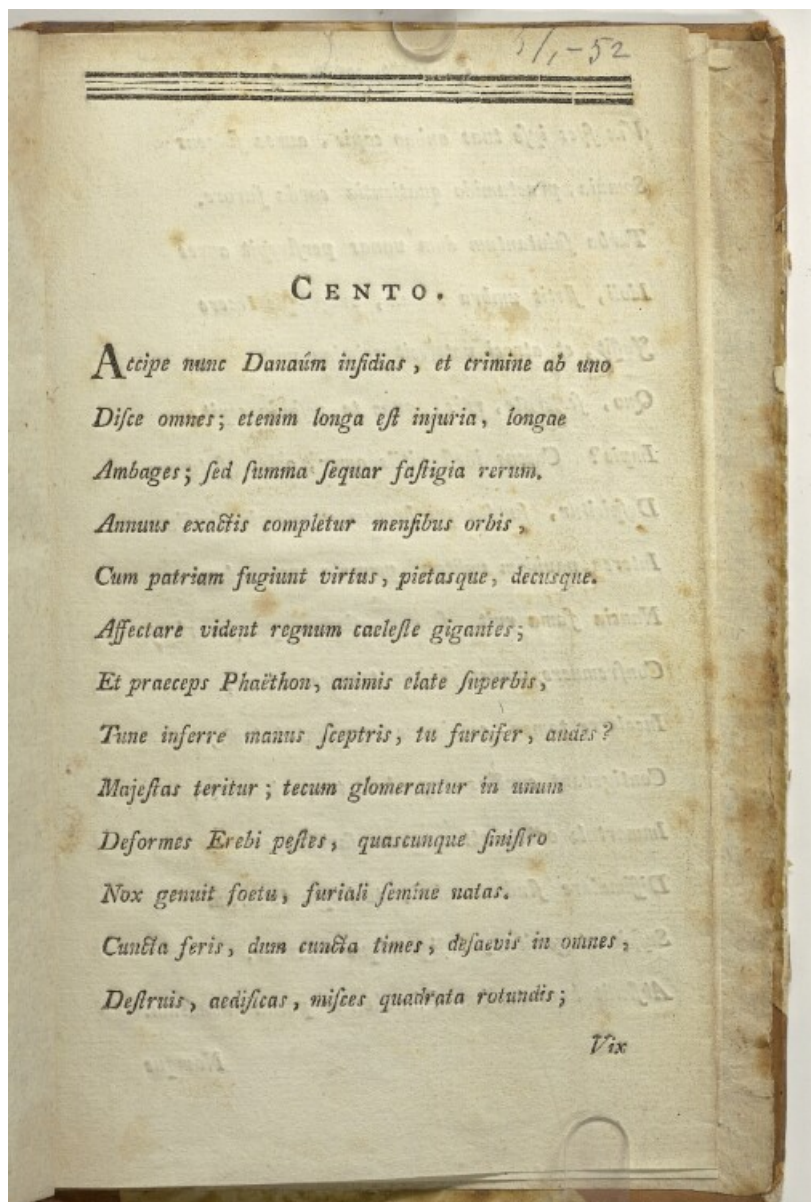 CENTO.
Accipe nunc Danaúm inſidias, et crimine ab uno
Diſce omnes; etenim longa eſt injuria, longae
Ambages; ſed ſumma ſequar faſtigia rerum.
Annuus exactis completur menſibus orbis,
Cum patriam fugiunt virtus, pietasque, decusque.
Affectare vident regnum caeleſte gigantes;
Et praeceps Phaëthon, animis elate ſuperbis,
Tune inferre manus ſceptris, tu furcifer, audes?
Majeſtas teritur; tecum glomerantur in unum
Deformes Erebi peſtes, quascunque ſiniſtro
Nox genuit foetu, furiali ſemine natas.
Cuncta feris, dum cuncta times, deſaevis in omnes,
Deſtruis, aedificas, miſces quadrata rotundis;
Vix